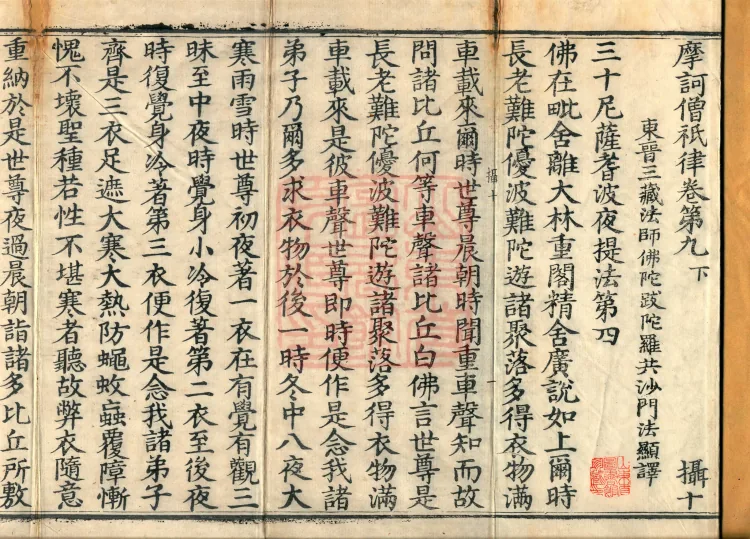 摩訶僧祇律卷第九 下 攝十
東晉三藏法師佛陀跋陀羅共沙門法顯譯
三十尼薩耆波夜提法第四
佛在毗舍離大林重閣精舍廣說如上爾時
長老難陀優波難陀遊諸聚落多得衣物滿
車載來爾時世尊晨朝時聞重車聲知而故
攝十
問諸比丘何等車聲諸比丘白佛言世尊是
長老難陀優波難陀遊諸聚落多得衣物滿
車載來是彼車聲世尊即時便作是念我諸
弟子乃爾多求衣物於後一時冬中八夜大
寒雨雪時世尊初夜著一衣在有覺有觀三
昧至中夜時覺身小冷復著第二衣至後夜
時復覺身冷著第三衣便作是念我諸弟子
齊是三衣足遮大寒大熱防蠅蚊䖟覆障慚
愧不壞聖種若性不堪寒者聽故弊衣隨意
重納於是世尊夜過晨朝詣諸多比丘所敷